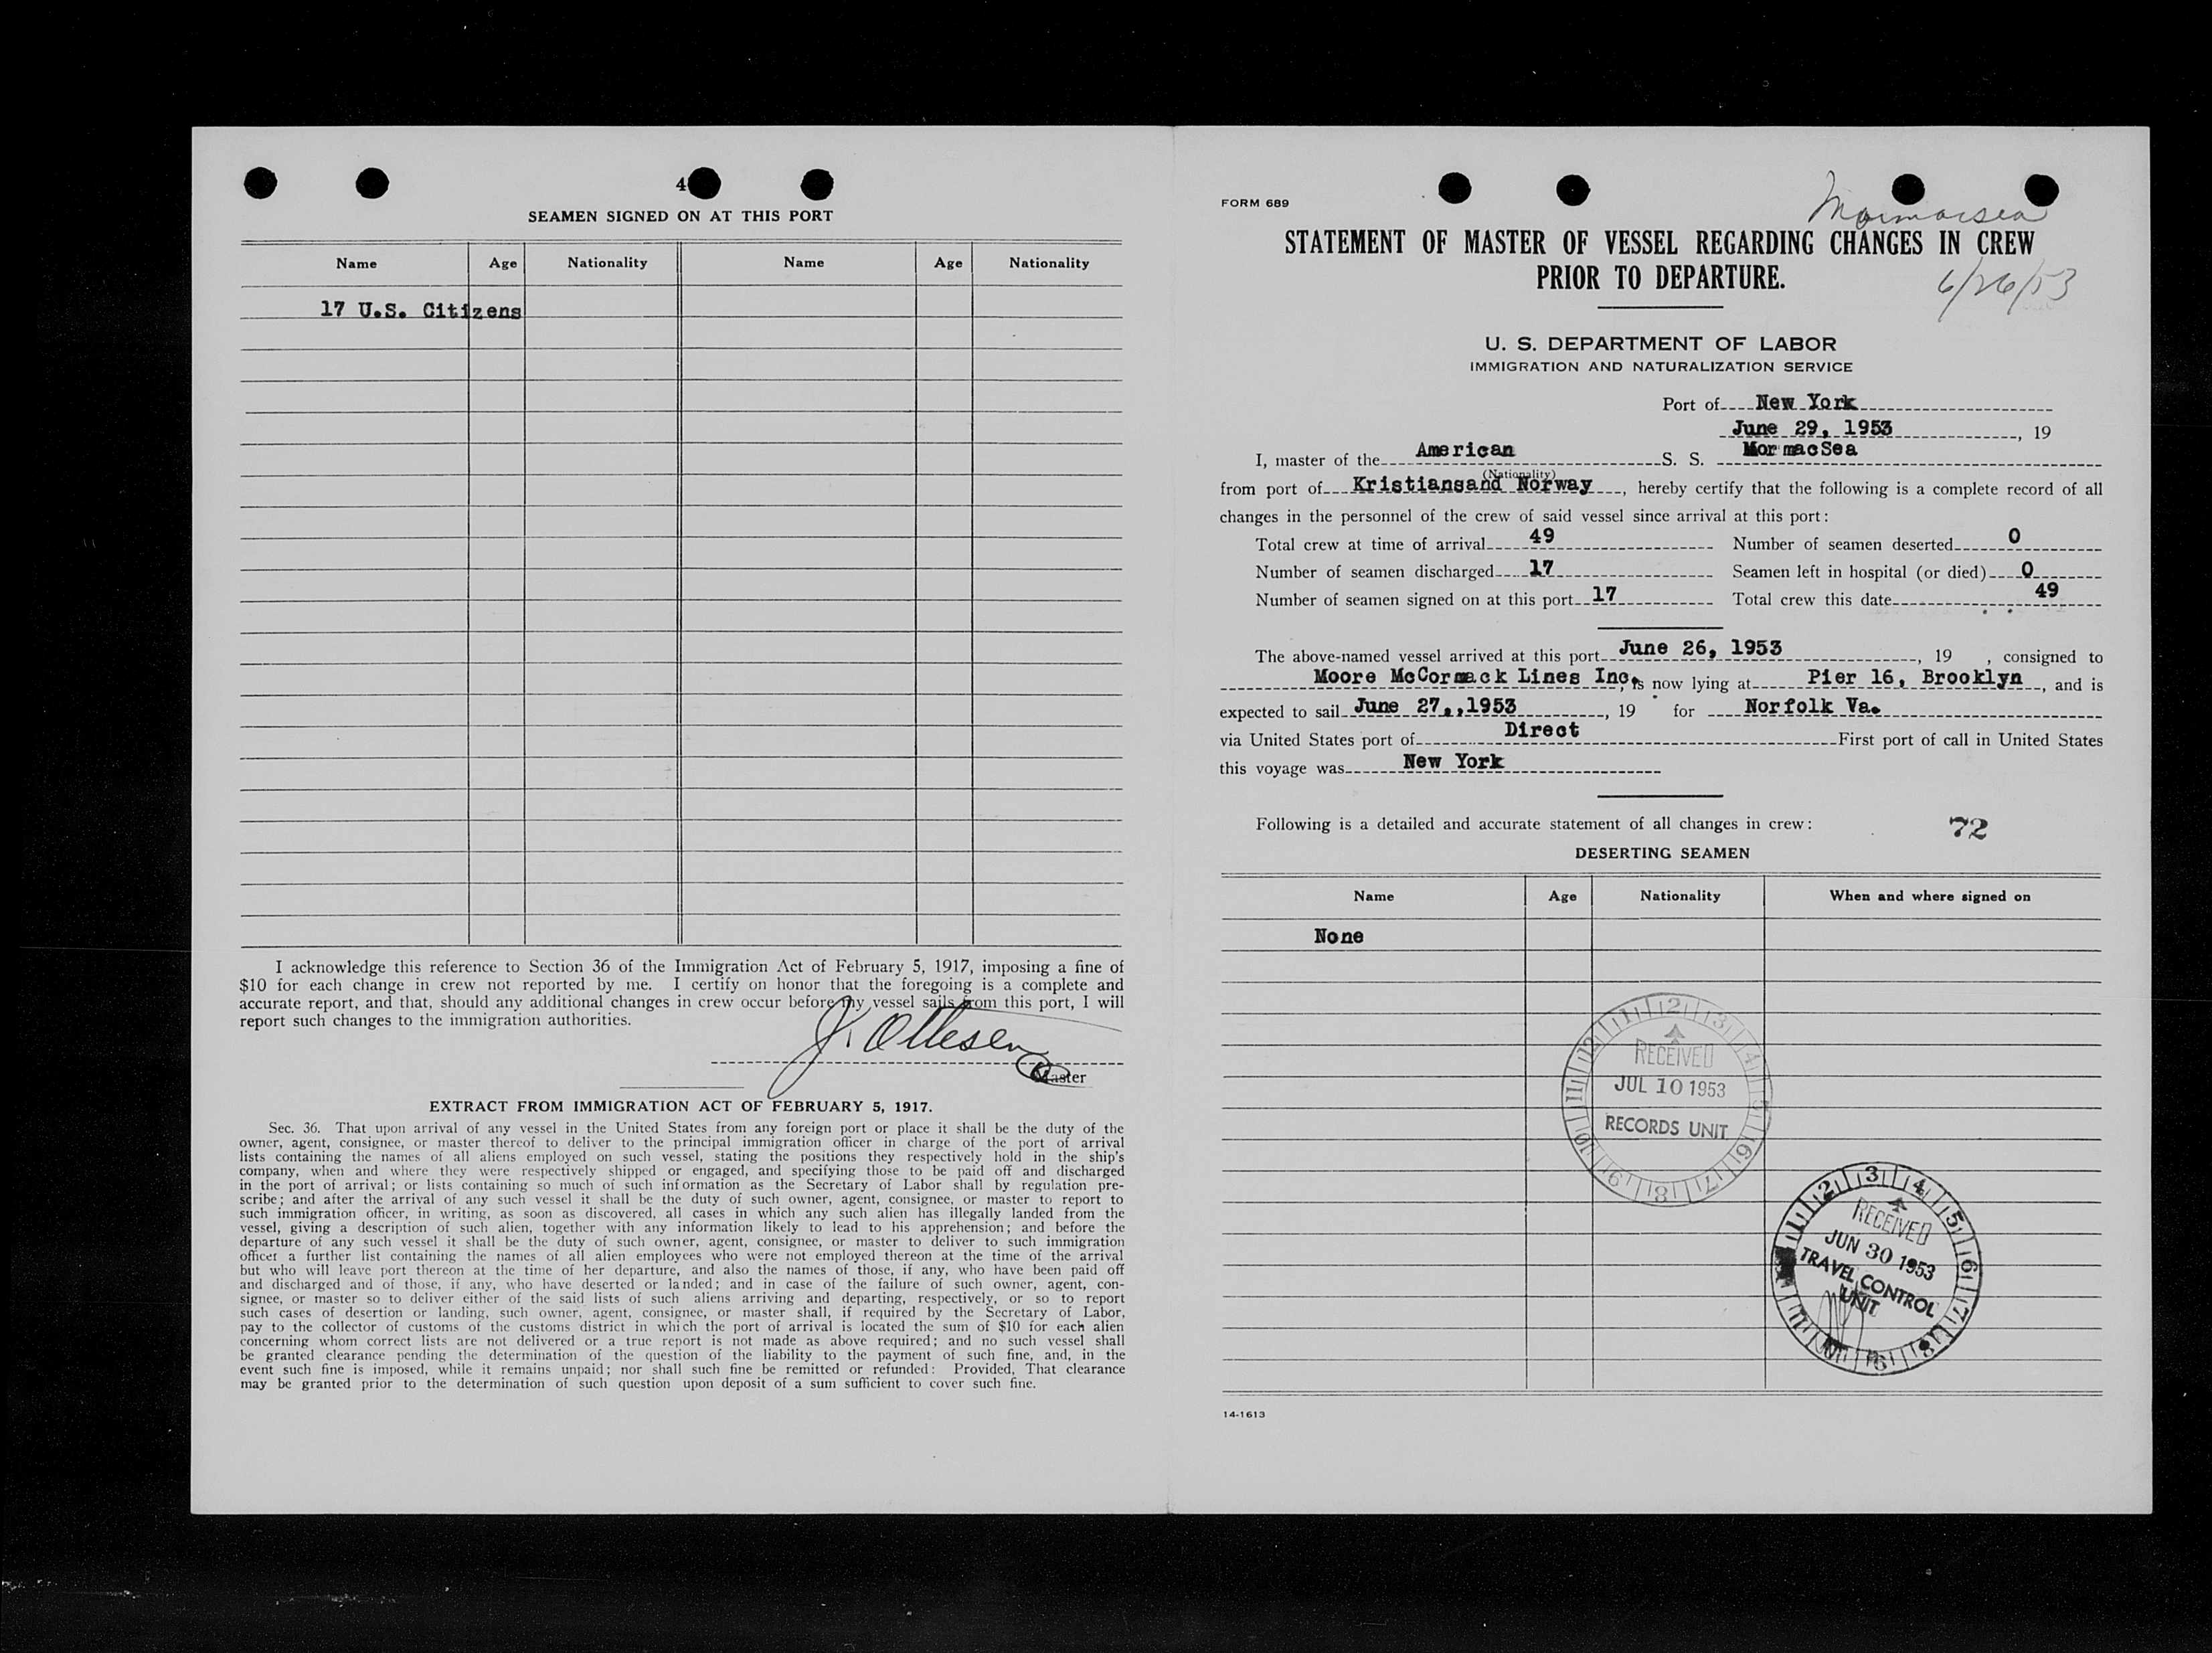 4
SEAMEN SIGNED ON AT THIS PORT
Name Age Nationality Name Age Nationality
17 U.S. Citizens
I acknowledge this reference to Section 36 of the Immigration Act of February 5, 1917, imposing a fine of
$10 for each change in crew not reported by me. I certify on honor that the foregoing is a complete and
accurate report, and that, should any additional changes in crew occur before my vessel sails from this port, I will
report such changes to the immigration authorities.
J. Ollesen
Master
EXTRACT FROM IMMIGRATION ACT OF FEBRUARY 5, 1917.
Sec. 36. That upon arrival of any vessel in the United States from any foreign port or place it shall be the duty of the
owner, agent, consignee, or master thereof to deliver to the principal immigration officer in charge of the port of arrival
lists containing the names of all aliens employed on such vessel, stating the positions they respectively hold in the ship's
company, when and where they were respectively shipped or engaged, and specifying those to be paid off and discharged
in the port of arrival; or lists containing so much of such information as the Secretary of Labor shall by regulation pre-
scribe; and after the arrival of any such vessel it shall be the duty of such owner, agent, consignee, or master to report to
such immigration officer, in writing, as soon as discovered, all cases in which any such alien has illegally landed from the
vessel, giving a description of such alien, together with any information likely to lead to his apprehension; and before the
departure of any such vessel it shall be the duty of such owner, agent, consignee, or master to deliver to such immigration
officer a further list containing the names of all alien employees who were not employed thereon at the time of the arrival
but who will leave port thereon at the time of her departure, and also the names of those, if any, who have been paid off
and discharged and of those, if any, who have deserted or landed; and in case of the failure of such owner, agent, con-
signee, or master so to deliver either of the said lists of such aliens arriving and departing, respectively, or so to report
such cases of desertion or landing, such owner, agent, consignee, or master shall, if required by the Secretary of Labor,
pay to the collector of customs of the customs district in which the port of arrival is located the sum of $10 for each alien
concerning whom correct lists are not delivered or a true report is not made as above required; and no such vessel shall
be granted clearance pending the determination of the question of the liability to the payment of such fine, and, in the
event such fine is imposed, while it remains unpaid; nor shall such fine be remitted or refunded: Provided, That clearance
may be granted prior to the determination of such question upon deposit of a sum sufficient to cover such fine.
FORM 689
Mormacsea
STATEMENT OF MASTER OF VESSEL REGARDING CHANGES IN CREW
PRIOR TO DEPARTURE.
6/26/53
U. S. DEPARTMENT OF LABOR
IMMIGRATION AND NATURALIZATION SERVICE
Port of New York
June 29, 1953, 19
I, master of the American S. S. MormacSea
(Nationality)
from port of Kristiansand Norway, hereby certify that the following is a complete record of all
changes in the personnel of the crew of said vessel since arrival at this port:
Total crew at time of arrival 49 Number of seamen deserted 0
Number of seamen discharged 17 Seamen left in hospital (or died) 0
Number of seamen signed on at this port 17 Total crew this date 49
The above-named vessel arrived at this port June 26, 1953, 19 , consigned to
Moore McCormack Lines Inc, is now lying at Pier 16, Brooklyn, and is
expected to sail June 27,,1953, 19 for Norfolk Va.
via United States port of Direct First port of call in United States
this voyage was New York
Following is a detailed and accurate statement of all changes in crew:
72
DESERTING SEAMEN
Name Age Nationality When and where signed on
None
12 1 2 3 4 5 6 7 8 9 10 11
RECEIVED
JUL 10 1953
RECORDS UNIT
1 2 3 4 5 6 7 8 9
RECEIVED
JUN 30 1953
TRAVEL CONTROL
UNIT
14-1613